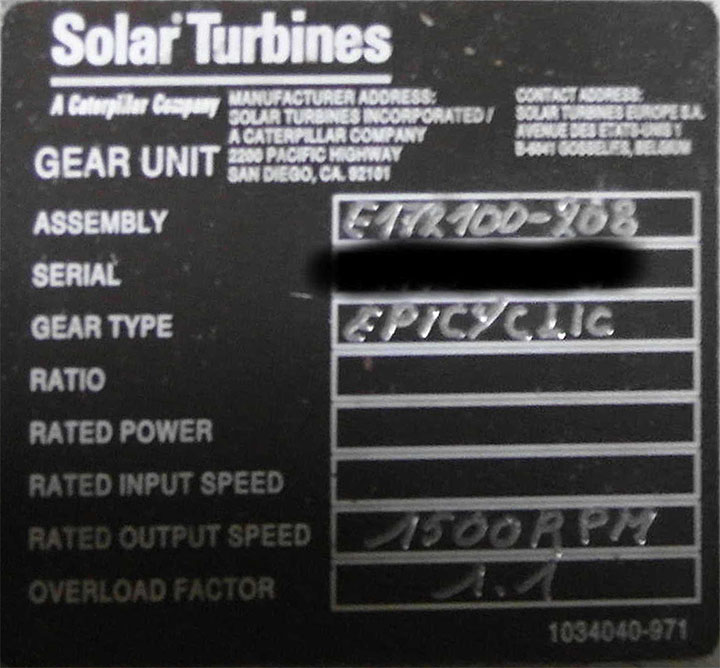 Solar Turbines
A Caterpillar Company
MANUFACTURER ADDRESS:
SOLAR TURBINES INCORPORATED /
A CATERPILLAR COMPANY
2200 PACIFIC HIGHWAY
SAN DIEGO, CA. 92101
CONTACT ADDRESS:
SOLAR TURBINES EUROPE S.A.
AVENUE DES ETATS-UNIS 1
GOSSELIES, BELGIUM
GEAR UNIT
ASSEMBLY
SERIAL
GEAR TYPE EPICYCLIC
RATIO
RATED POWER
RATED INPUT SPEED
RATED OUTPUT SPEED 1500RPM
OVERLOAD FACTOR 1.1
1034040-971